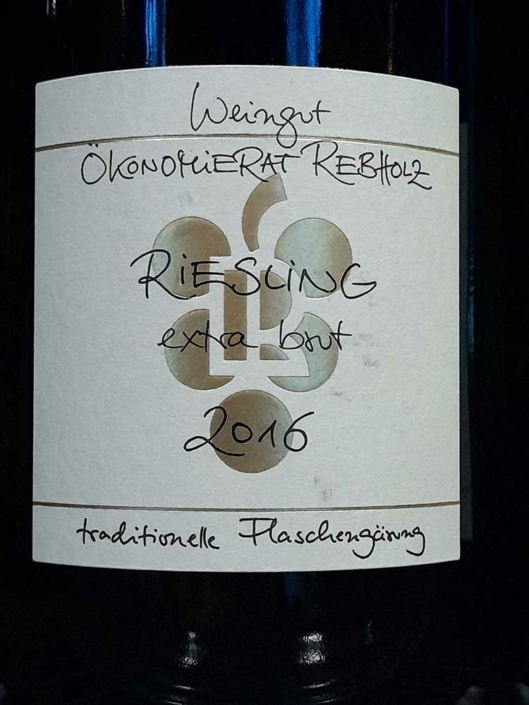 Weingut
ÖKONOMIERAT REBHOLZ
RiESLiNG
extra brut
2016
traditionelle Flaschengärung